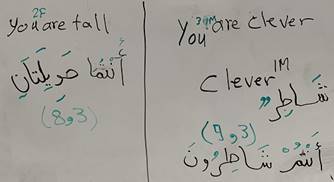 You 2F are tall
أَنْتُمَا طَوِيلَتَانِ
(8و3)
You 3/M are clever
clever 1M
شَاطِرٌ
(9و3)
أَنْتُمْ شَاطِرُونَ